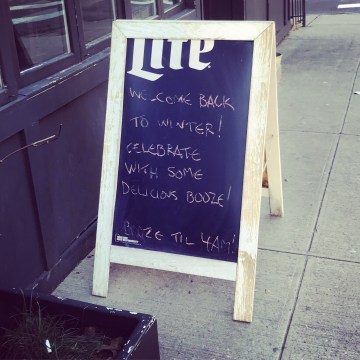 Lite
WELCOME BACK
TO WINTER!
CELEBRATE
WITH SOME
DELICIOUS BOOZE!
BOOZE TIL 4AM!